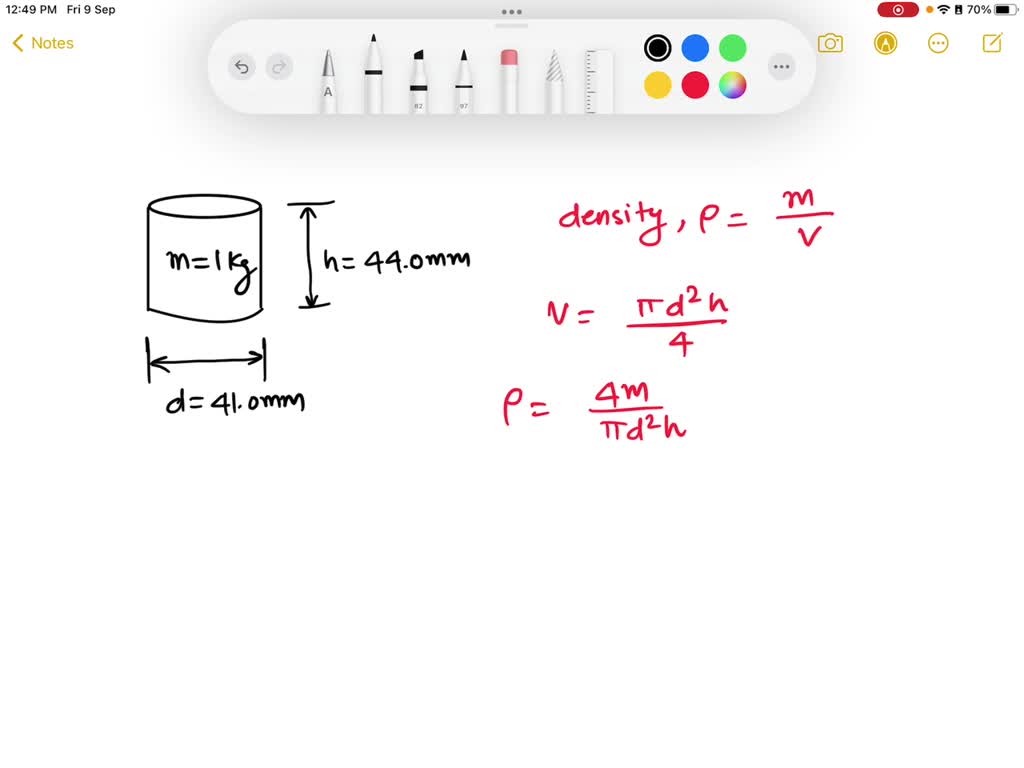 12:49 PM Fri 9 Sep
70%
Notes
A
82
97
m=1kg
h=44.0mm
d=41.0mm
density, ρ = m/V
V = πd²h/4
ρ = 4m/πd²h